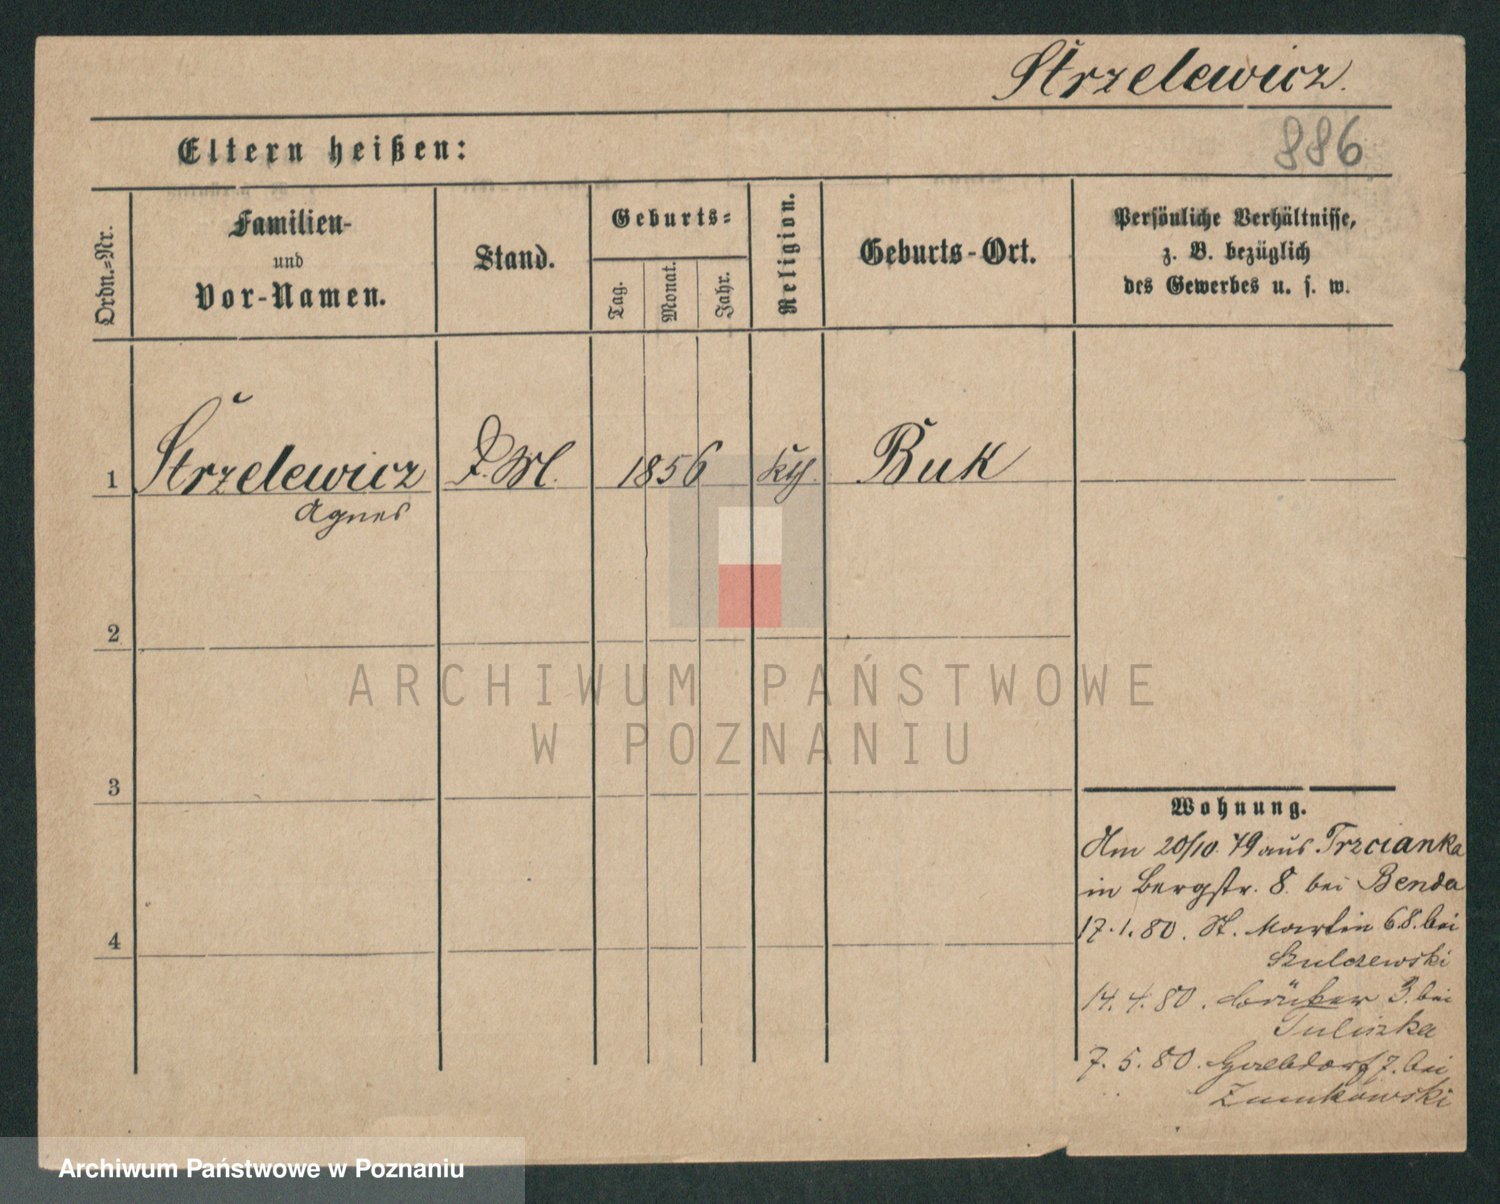 Strzelewicz.
886
Eltern heißen:
Ordn.=Nr.
Familien-
und
Vor-Namen.
Stand.
Geburts=
Tag.
Monat.
Jahr.
Religion.
Geburts-Ort.
Persönliche Verhältnisse,
z. B. bezüglich
des Gewerbes u. s. w.
1 Strzelewicz D. M. 1856 kth. Buk
Agnes
2
3
4
ARCHIWUM PAŃSTWOWE
W POZNANIU
Wohnung.
Am 20/10 79 aus Trzcianka
in Bergstr. 8. bei Benda
17.1.80. St. Martin 68. bei
Kulczewski
14.4.80. 3. bei
Tuliszka
7.5.80. 7. bei
Archiwum Państwowe w Poznaniu